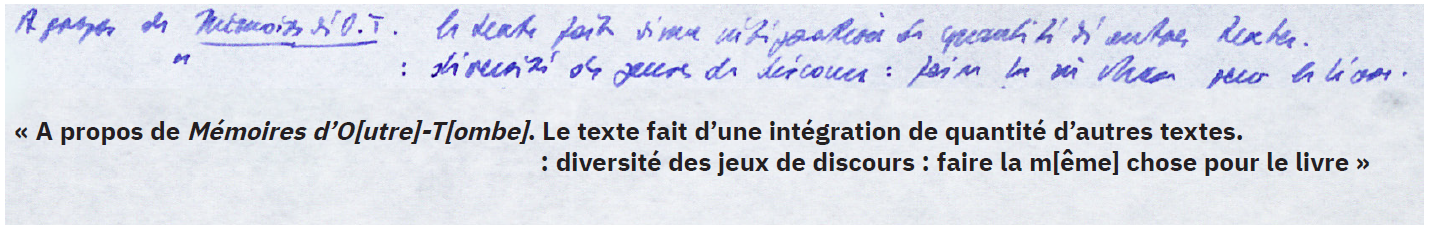 A propos de Mémoires d'O.T. le texte fait d'une intégration de quantité d'autres textes.
" : diversité des jeux de discours : faire la m̂ chose pour le livre.
« A propos de Mémoires d’O[utre]-T[ombe]. Le texte fait d’une intégration de quantité d’autres textes.
: diversité des jeux de discours : faire la m[ême] chose pour le livre »